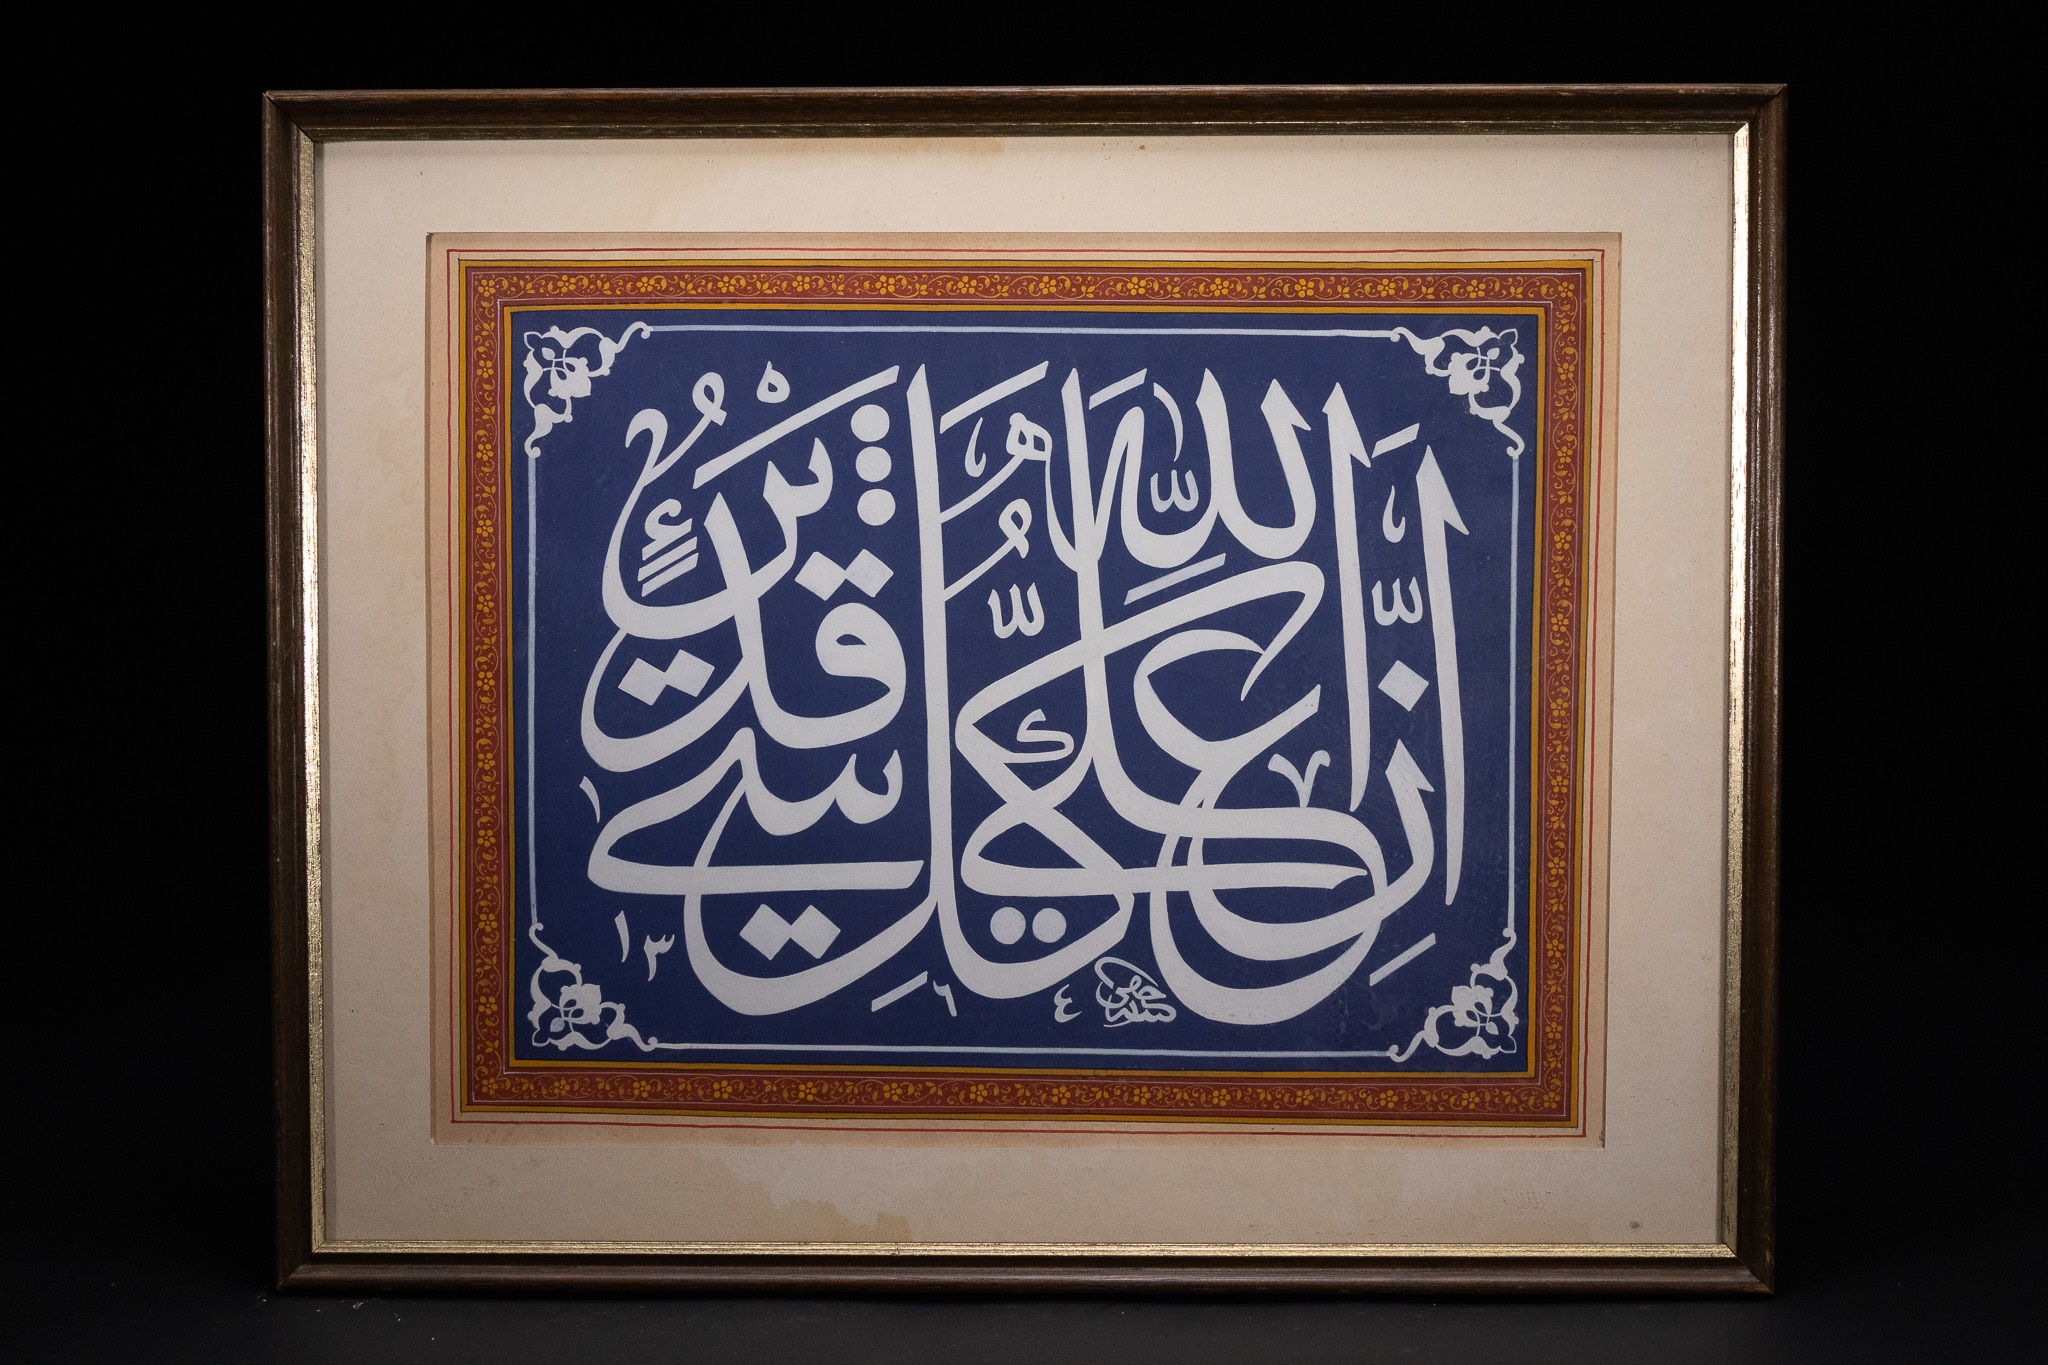 إِنَّ اللَّهَ عَلَى كُلِّ شَيْءٍ قَدِيرٌ
١٣٦٤